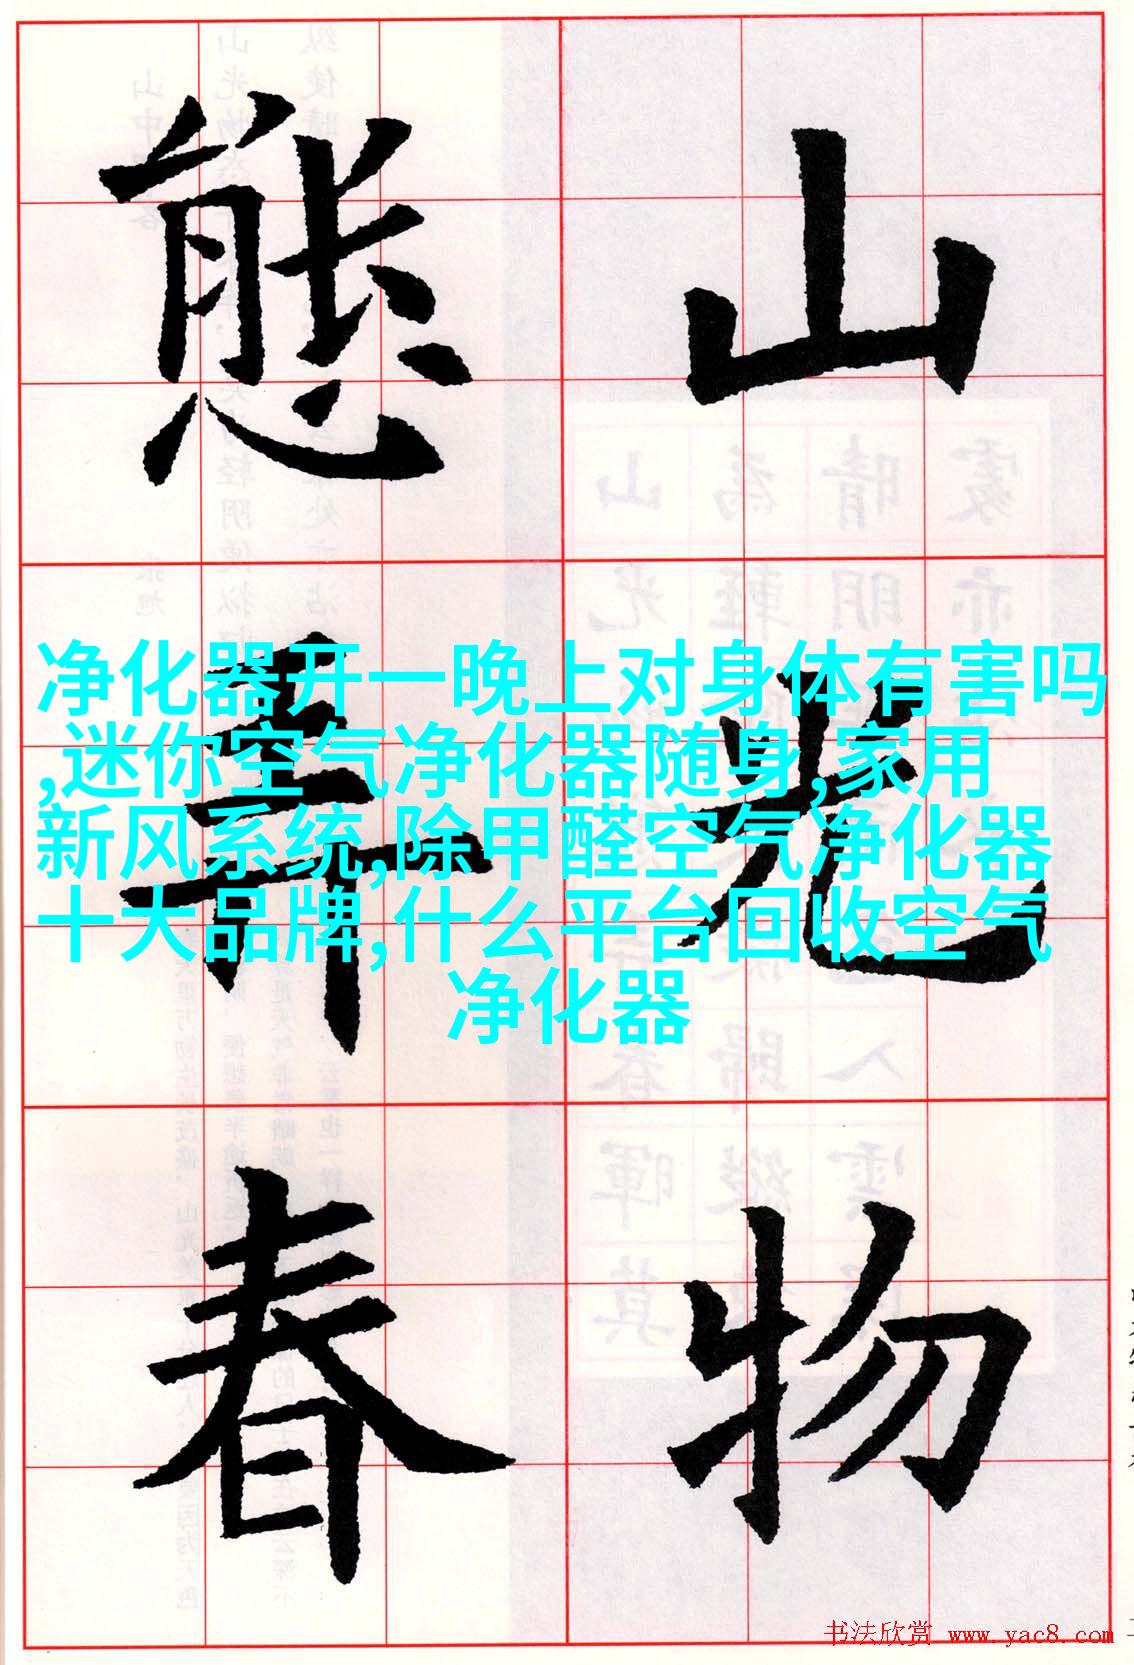 山光物
態弄春
净化器开一晚上对身体有害吗
,迷你空气净化器随身,家用
新风系统,除甲醛空气净化器
十大品牌,什么平台回收空气
净化器
书法欣赏 www.yac8.com